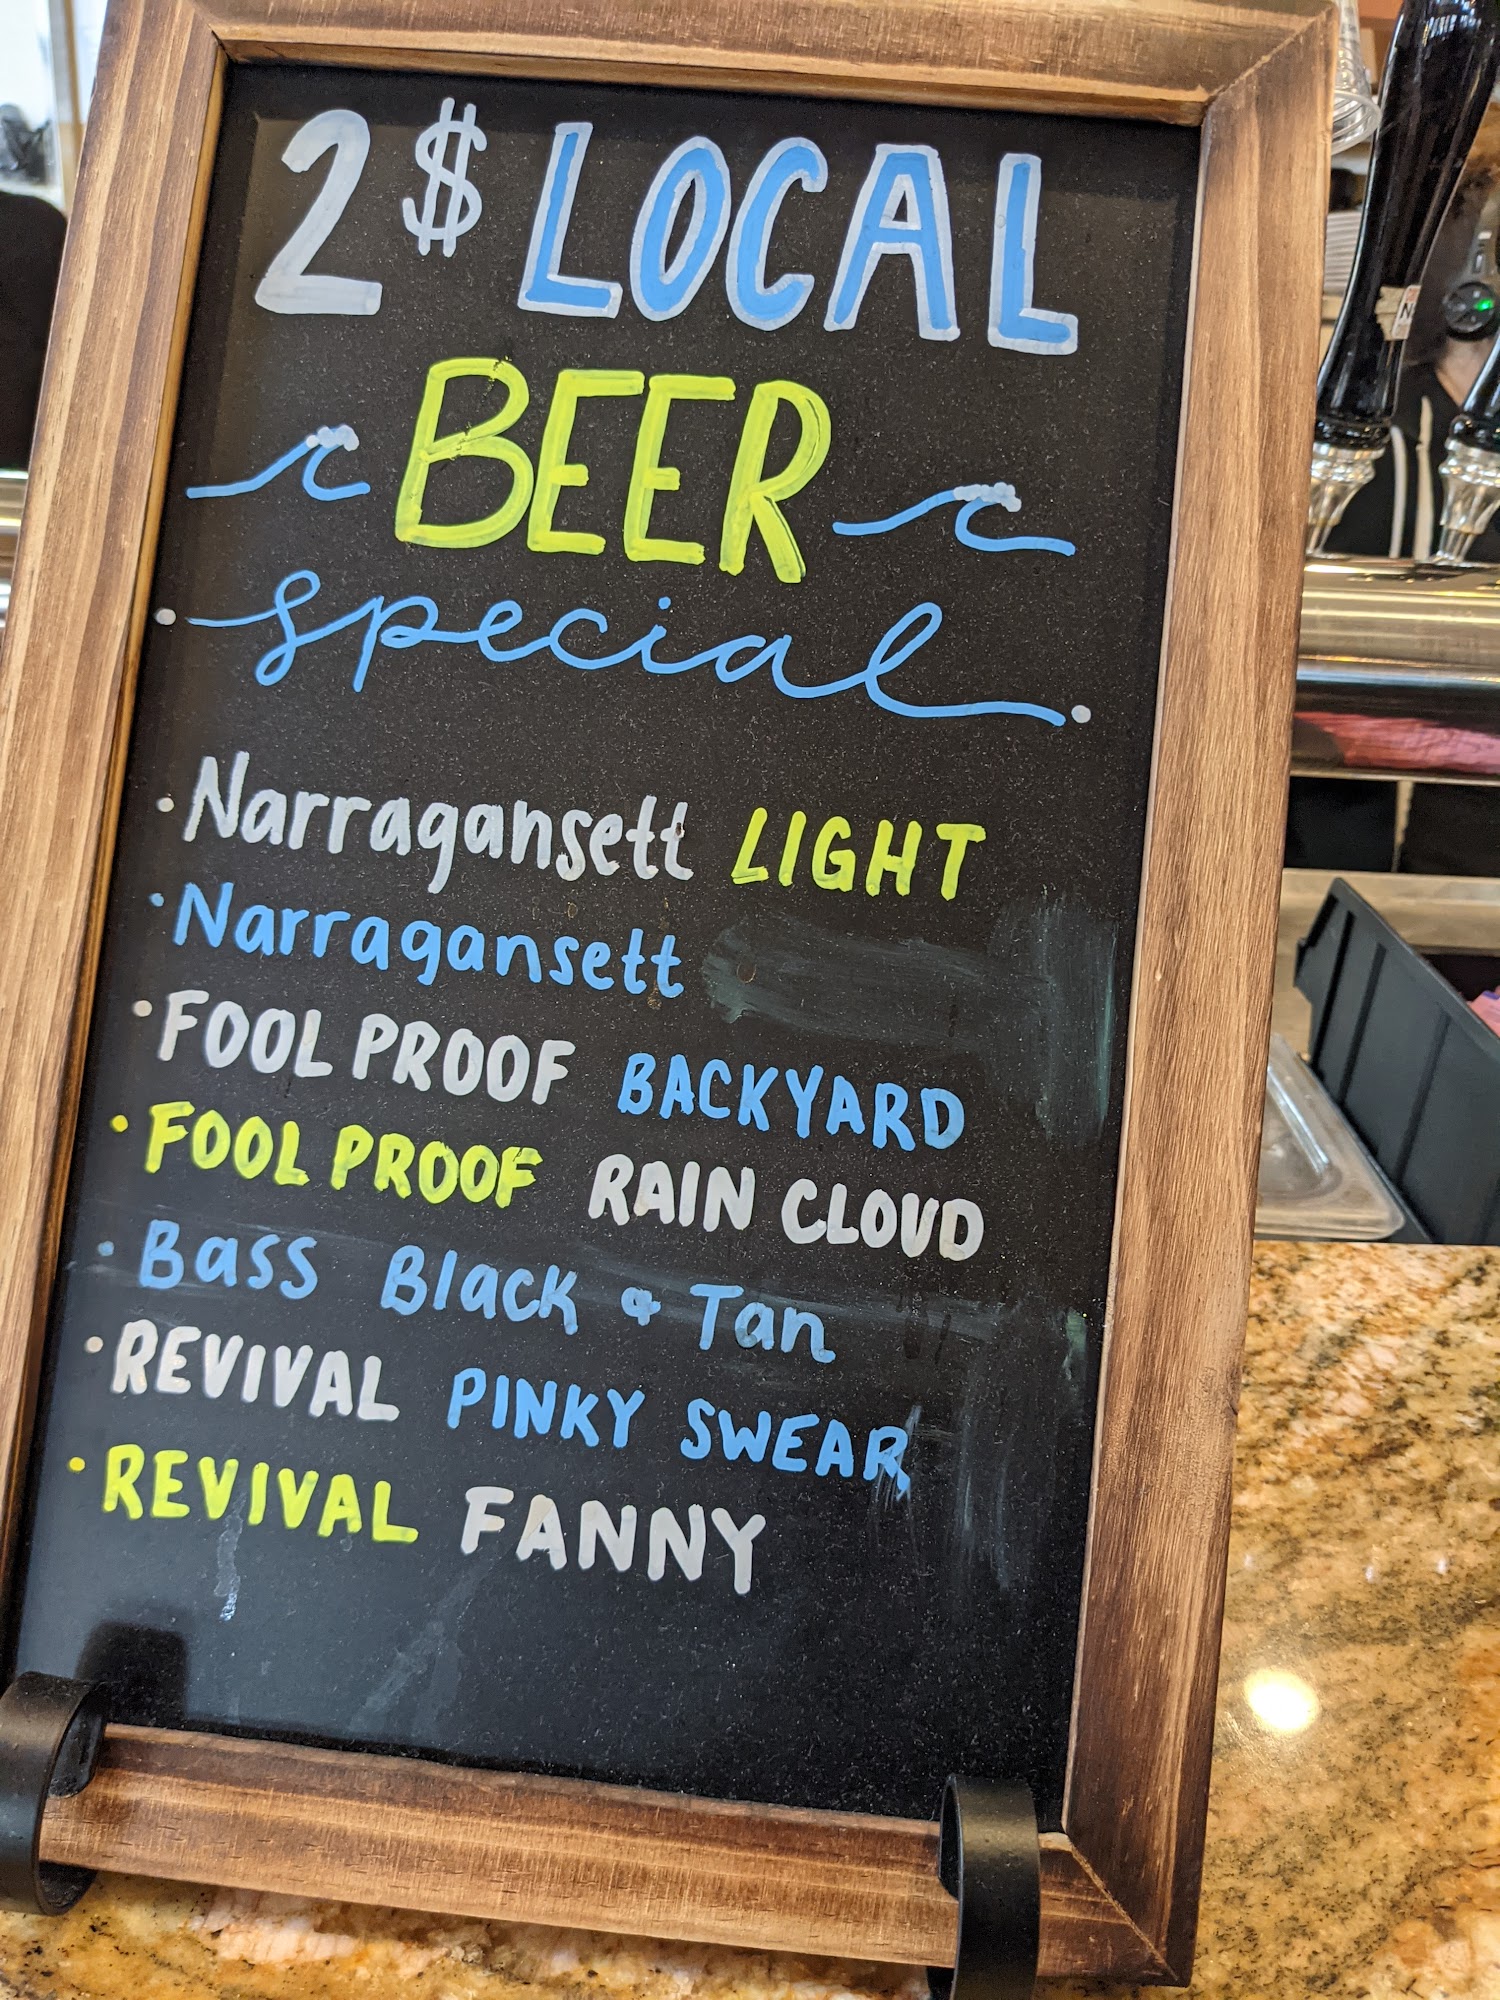 2$ LOCAL
BEER
special
· Narragansett LIGHT
· Narragansett
· FOOLPROOF BACKYARD
· FOOLPROOF RAIN CLOUD
· Bass Black & Tan
· REVIVAL PINKY SWEAR
· REVIVAL FANNY